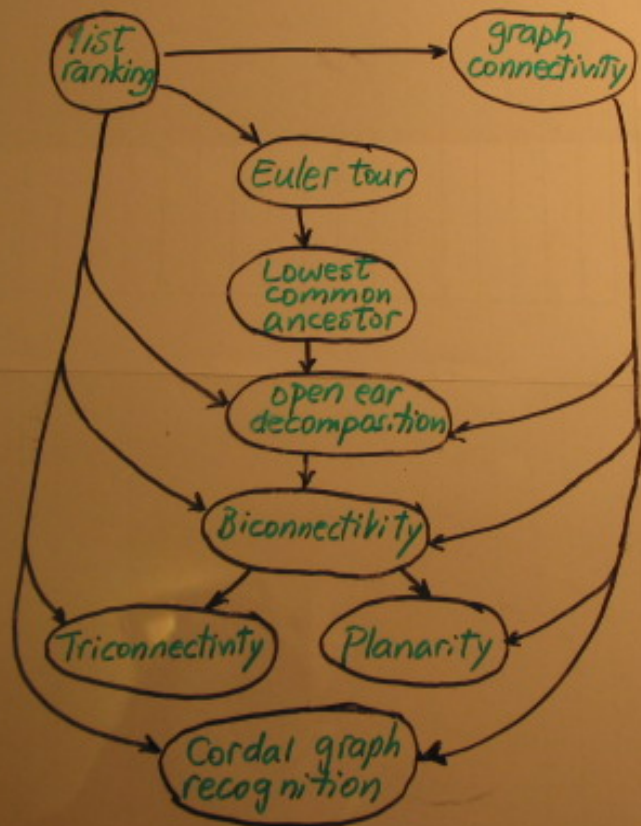 list
ranking
graph
connectivity
Euler tour
Lowest
common
ancestor
open ear
decomposition
Biconnectivity
Triconnectivity
Planarity
Cordal graph
recognition